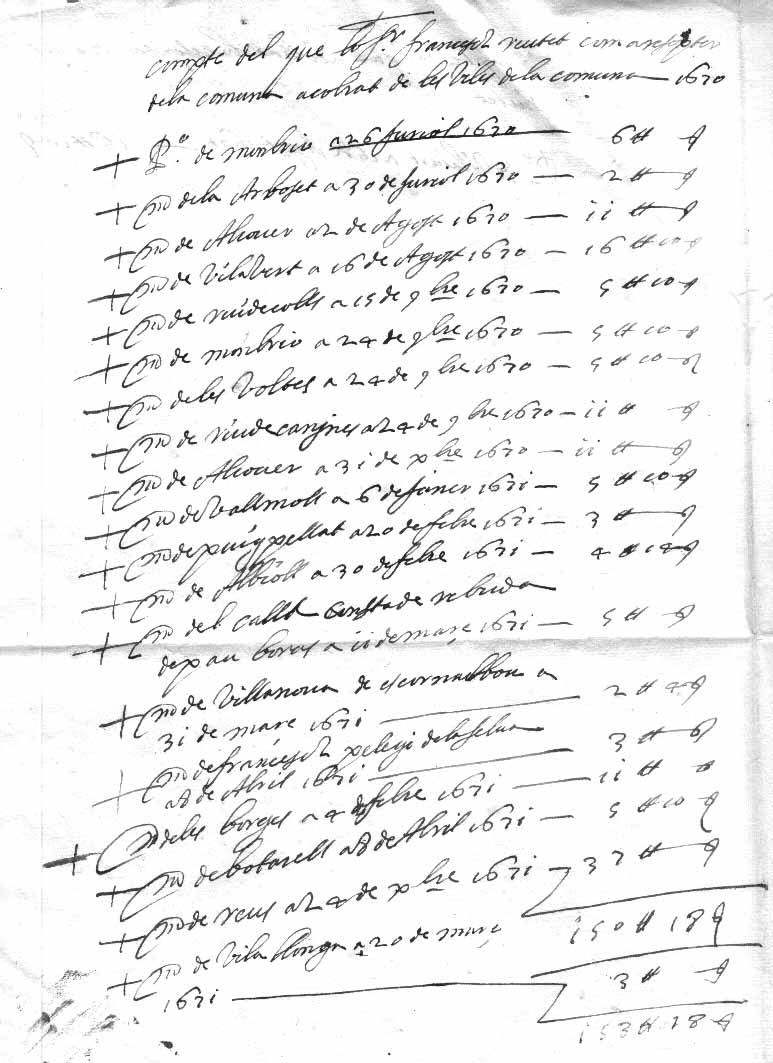 compte del que lo Sr. francesch rectet com a receptor
de la comuna a cobrat de les viles de la comuna 1670
+ Po. de monbrio a 26 Juriol 1670 — 6 ₶ — ꝭ
+ mo de la Arboset a 30 de Juriol 1670 — 2 ₶ — ꝭ
+ mo de Alcover a 2 de Agost 1670 — ii ₶ — ꝭ
+ mo de Vilavert a 16 de Agost 1670 — 16 ₶ 10 ꝭ
+ mo de riudecolls a 15 de 9bre 1670 — 5 ₶ 10 ꝭ
+ mo de monbrio a 24 de 9bre 1670 — 5 ₶ 10 ꝭ
+ mo de les Voltes a 24 de 9bre 1670 — 5 ₶ 10 ꝭ
+ mo de riudecanyes a 24 de 9bre 1670 — ii ₶ ꝭ
+ mo de Alcover a 3i de xbre 1670 — ii ₶ — ꝭ
+ mo de Vallmoll a 6 de Janer 167i — 5 ₶ 10 ꝭ
+ mo de puigpellat a 20 de febre 167i — 3 ₶ — ꝭ
+ mo de Albiolt a 30 de febre 167i — 4 ₶ 14 ꝭ
+ mo del Catllt consta de rebuda
de pau boras a ii de març 167i — 5 ₶ — ꝭ
+ mo de Villanova de escornalbou a
3i de març 167i — 2 ₶ 4 ꝭ
+ mo de francesch pelegi de la selva
a 8 de Abril 167i — 3 ₶ — 6 ꝭ
+ mo de les borges a 4 de febre 167i — ii ₶
+ mo de botarell a 8 de Abril 167i — 5 ₶ 10 ꝭ
+ mo de reus a 24 de xbre 167i — 37 ₶ — ꝭ
i50 ₶ 18 ꝭ
+ mo de Vilallonga a 20 de març
167i — 3 ₶ — ꝭ
i53 ₶ 18 ꝭ